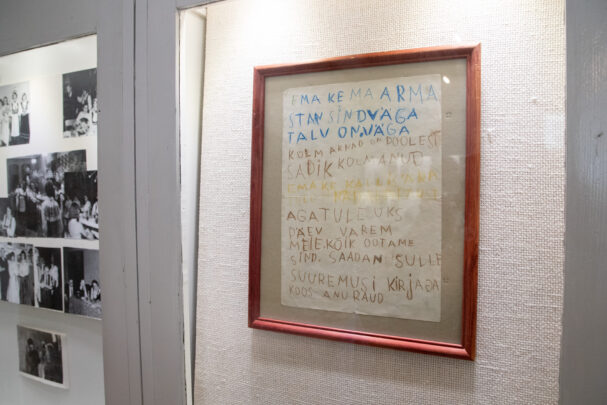 EMA KE MA ARMA
STAN SIND VÄGA
TALU ON VÄGA
KOLM AKNAD ON POOLEST
SADIK KÜLMANUD
EMA KE
AGA TULE ÜKS
PÄEV VAREM
MEIE KÕIK OOTAME
SIND. SAADAN SULLE
SUUREMUSI KIRJAGA
KOOS ANU RAUD